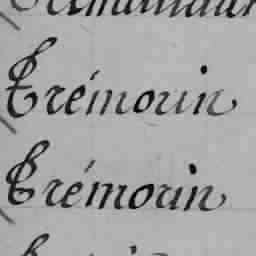 Trémorin
Trémorin